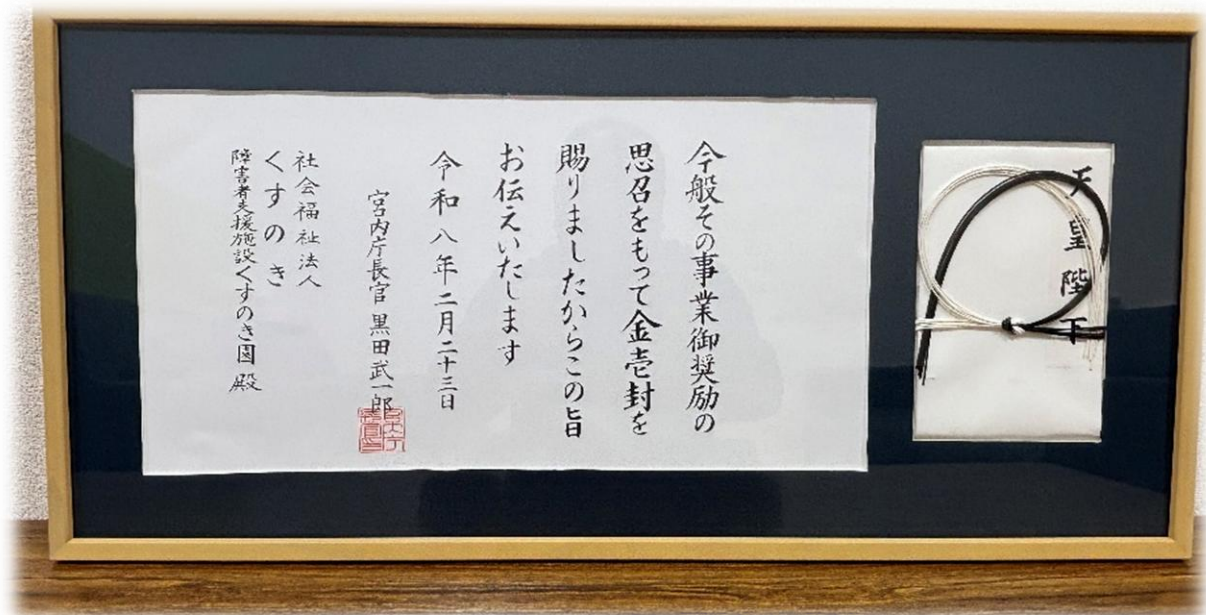 今般その事業御奨励の
思召をもって金壱封を
賜りましたからこの旨
お伝えいたします
令和八年二月二十三日
宮内庁長官 黒田武一郎
社会福祉法人
くすのき
障害者支援施設くすのき園 殿
天皇陛下